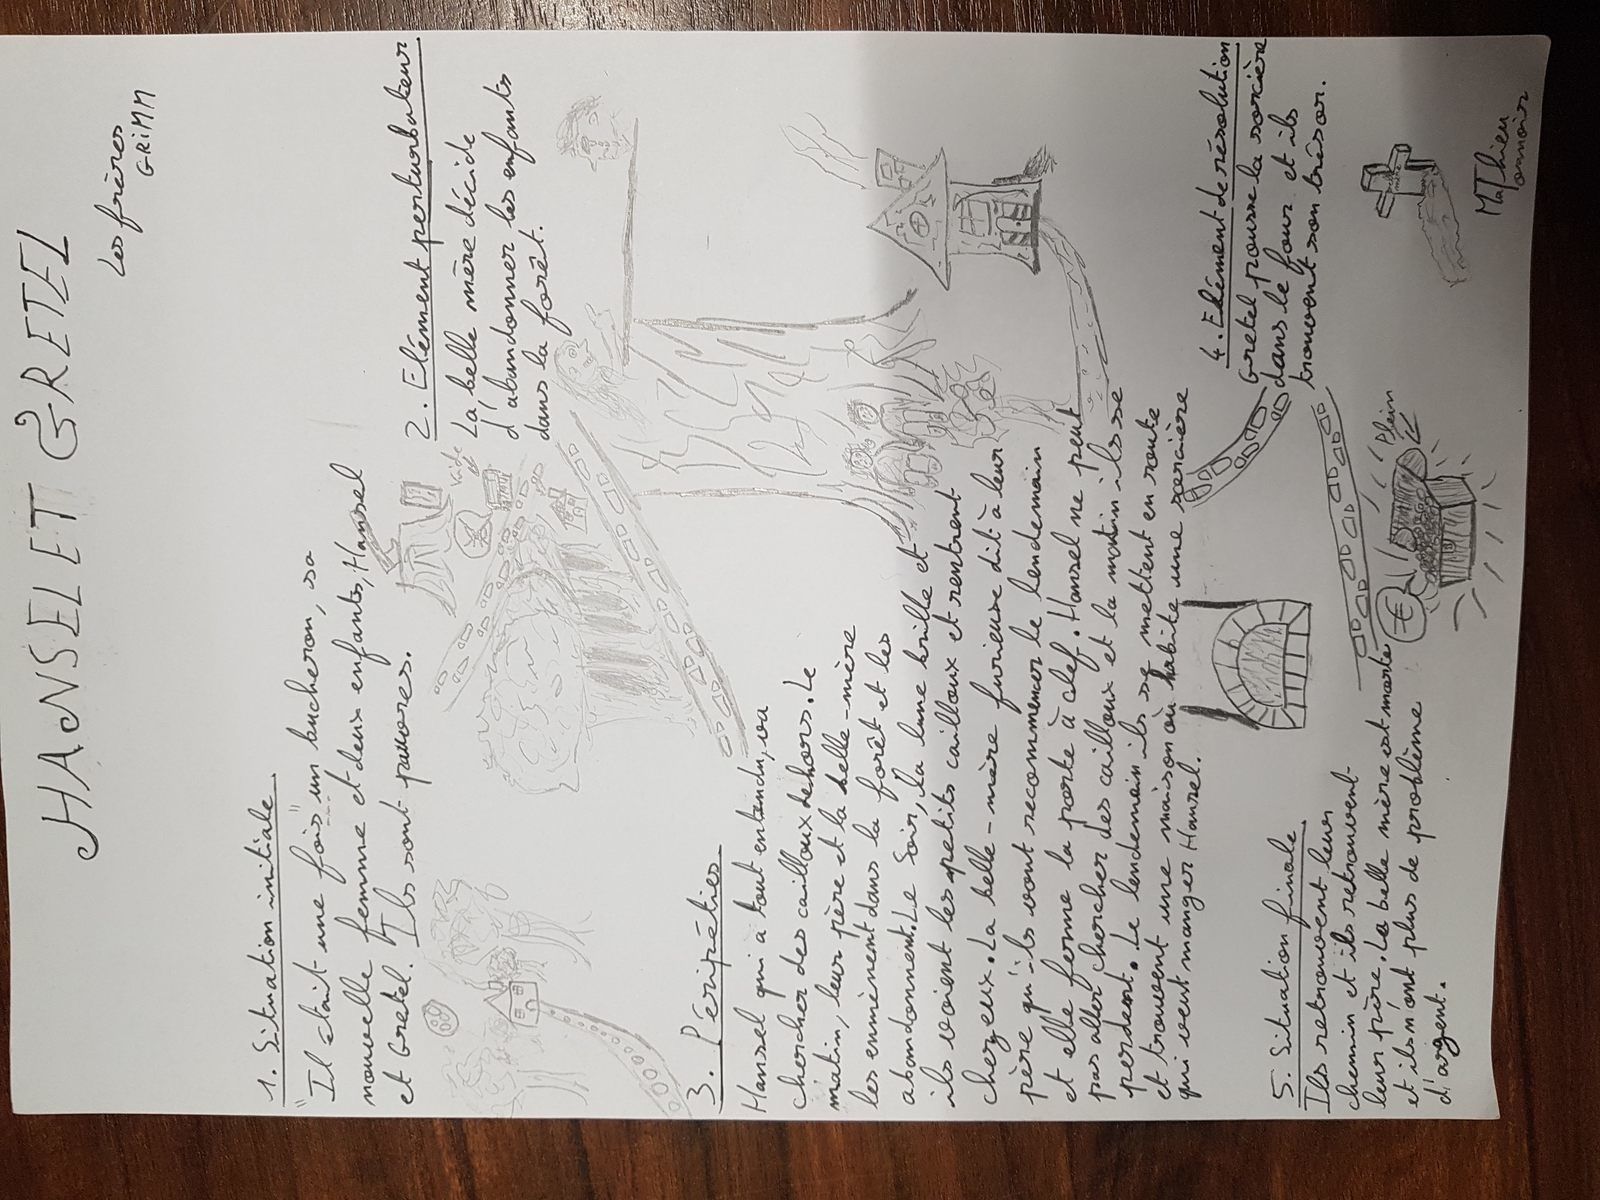 HANSEL ET GRETEL
Les frères
GRIMM
1. Situation initiale
"Il était une fois" un bucheron, sa
nouvelle femme et deux enfants, Hansel
et Gretel. Ils sont pauvres.
2. Elément perturbateur
La belle mère décide
d'abandonner les enfants
dans la forêt.
Vide
3. Péripéties
Hansel qui a tout entendu, va
chercher des cailloux dehors. Le
matin, leur père et la belle-mère
les emmènent dans la forêt et les
abandonnent. Le soir, la lune brille et
ils voient les petits cailloux et rentrent
chez eux. La belle-mère furieuse dit à leur
père qu'ils vont recommencer le lendemain
et elle ferme la porte à clef. Hansel ne peut
pas aller chercher des cailloux et la matin ils se
perdent. Le lendemain ils se mettent en route
et trouvent une maison où habite une sorcière
qui veut manger Hansel.
4. Elément de résolution
Gretel pousse la sorcière
dans le four et ils
trouvent son trésor.
5. Situation finale
Ils retrouvent leur
chemin et ils retrouvent
leur père. La belle mère est morte
et ils n'ont plus de problème
d'argent.
€
Plein
MaThieu